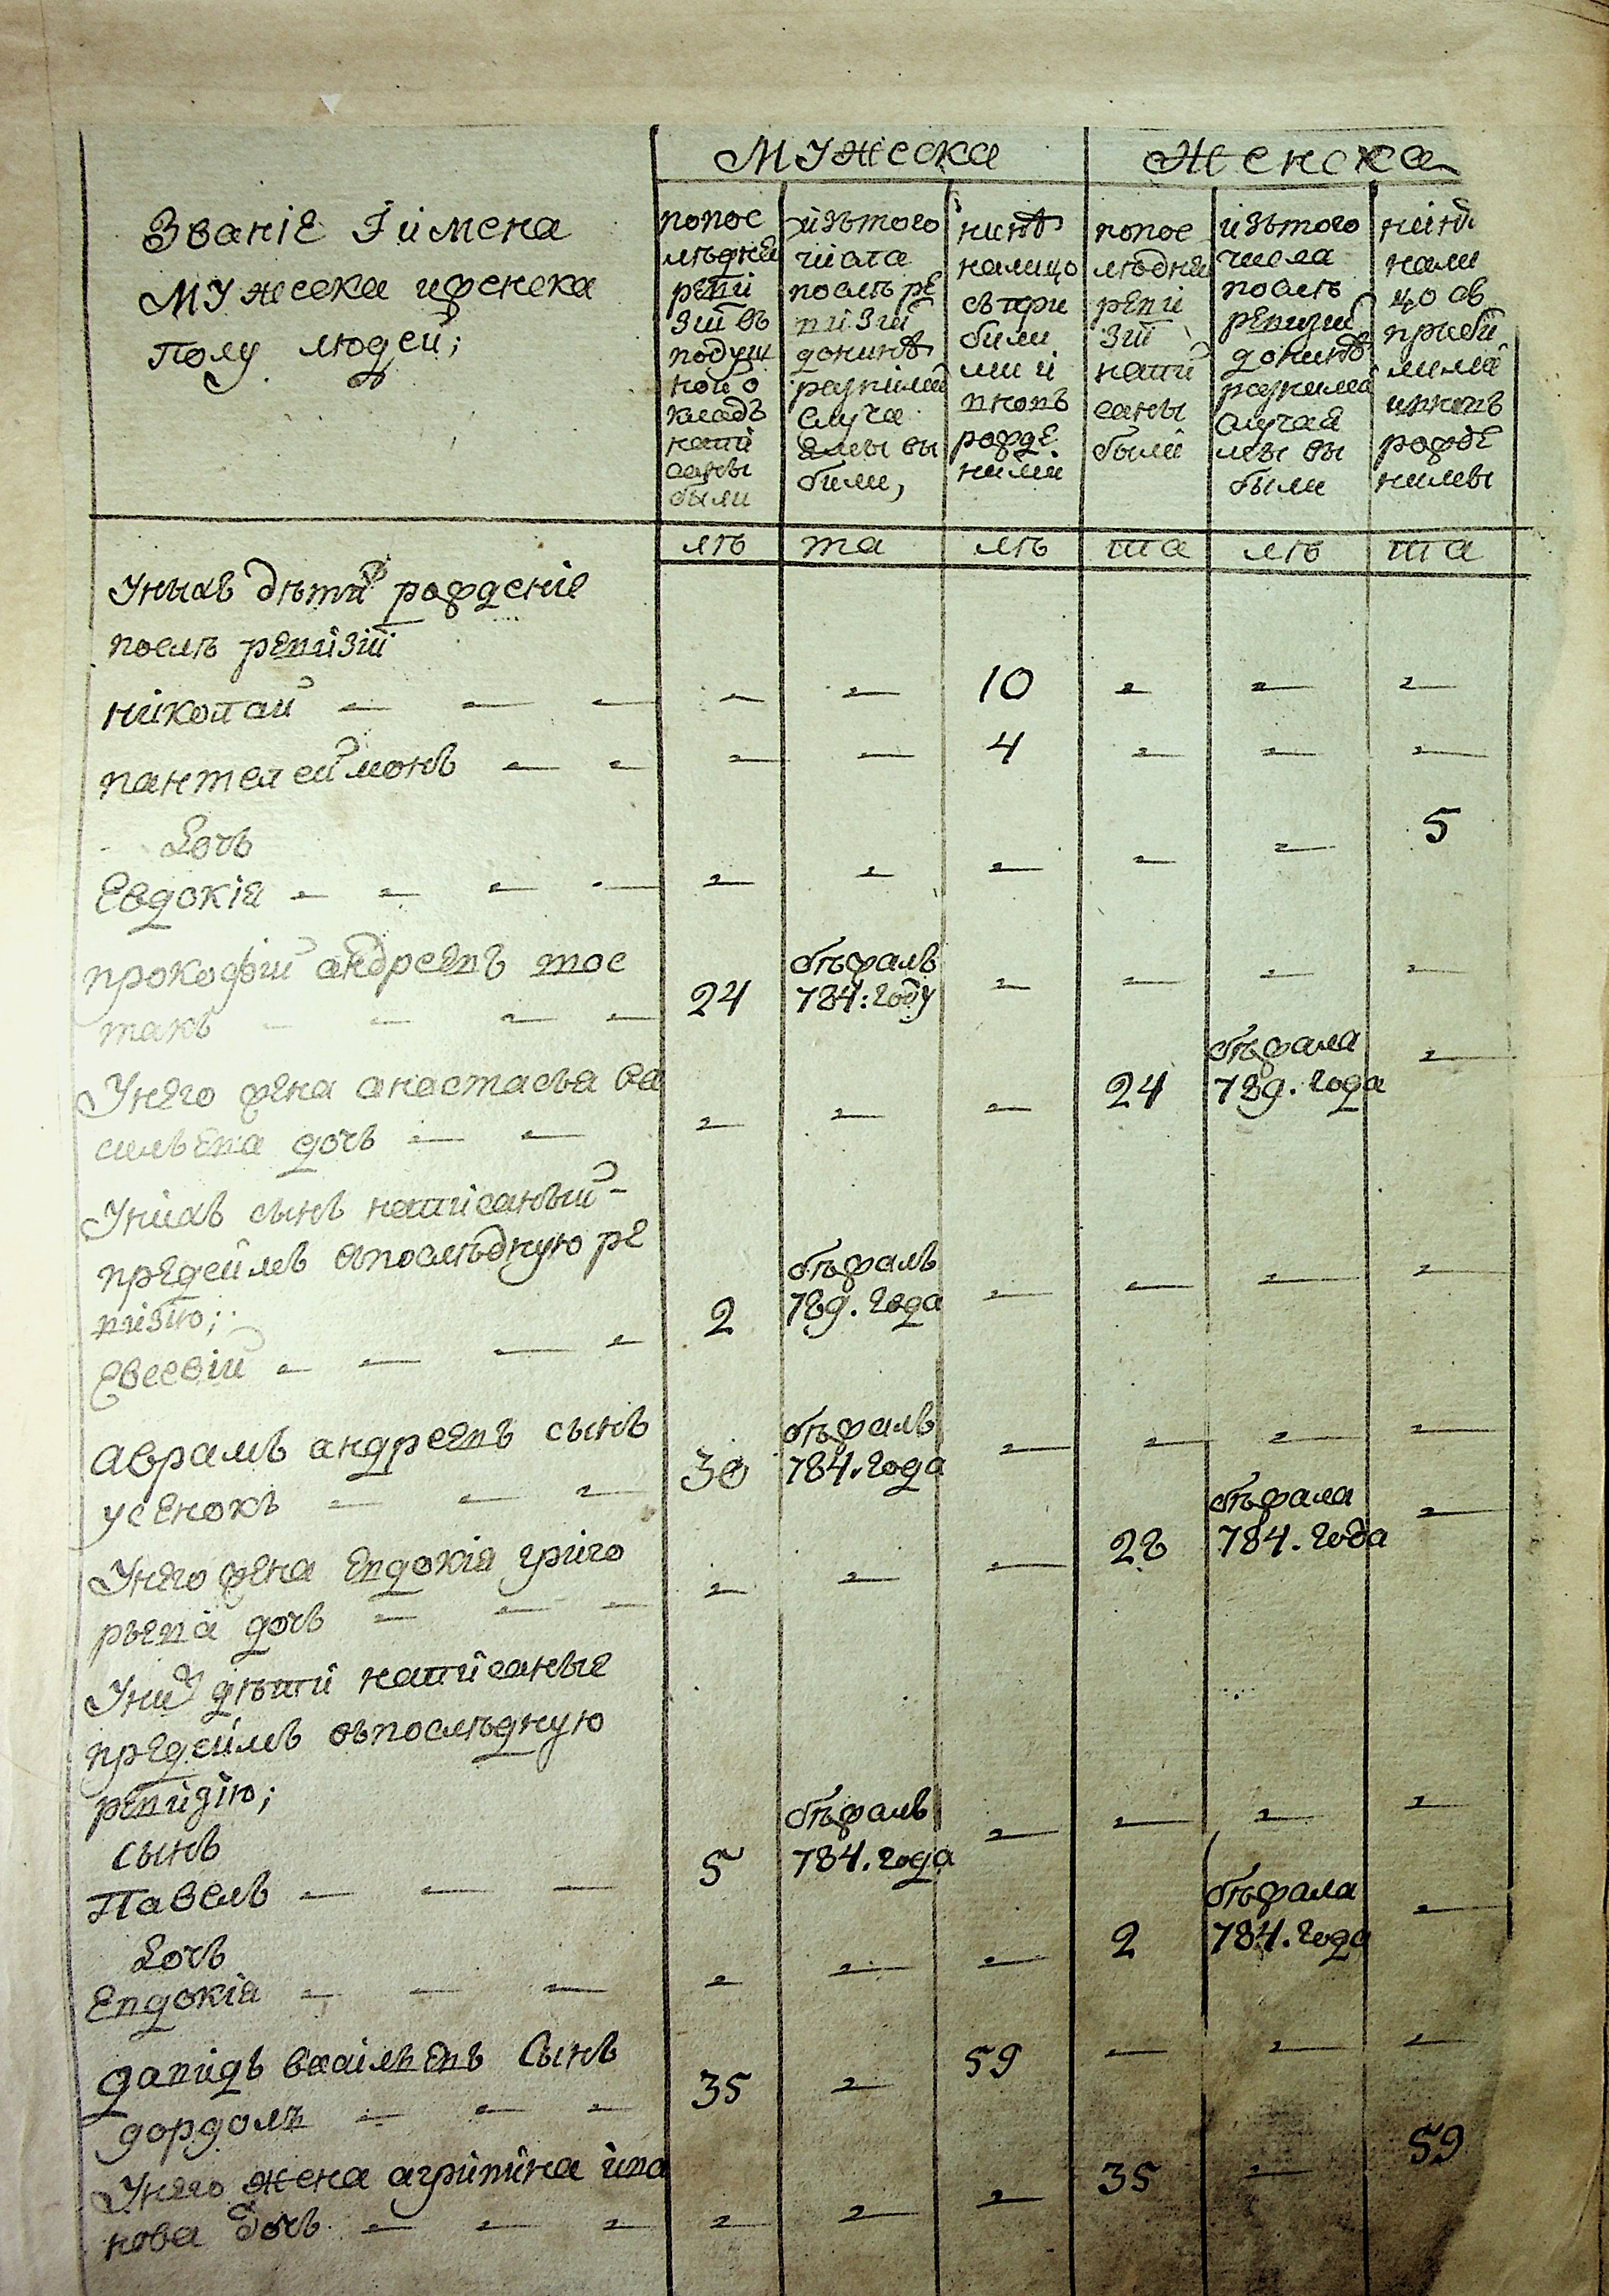 Мужеска
Женска
Званіе І имена
мужеска иженска
полу людей;
попос
лѣдней
реви
зіи въ
подуш
ной о
кладъ
напи
саны
были
изътого
числа
послѣ ре
визіи
донинѣ
разними
случа
ями вы
били,
нинѣ
налицо
съпри
били
ми и
вновь
рожде
ними
попос
лѣдней
реви
зіи
напи
саны
были
изътого
числа
послѣ
ревизии
донинѣ
разними
случая
мы вы
были
нинѣ
нали
цо съ
приби
лимы
ивновъ
рожде
нимы
лѣ та лѣ та лѣ та
Унихъ дѣти рожденіе
послѣ ревизіи
николай - - - - - 10 - - -
пантелеймонъ - - - - 4 - - -
Дочь
Евдокія - - - - - - - - - 5
прокофій андреевъ тос
такъ - - - 24 отъжалъ 784: году - - - -
Унего жена анастасья ва
сильева дочь - - - - - 24 отъжала 789. года -
Унихъ сынъ написаный -
предеймъ впослѣдную ре
визію;
Евсевій - - - - 2 отъжалъ 789. года - - - -
Аврамъ андреевъ сынъ
усенокъ - - - 30 отъжалъ 784. года - - - -
Унего жена Евдокія григо
рьева дочь - - - - - - 28 отъжала 784. года -
Уних дѣти написаные
предеймъ въпослѣдную
ревизію;
сынъ
Павелъ - - - 5 отъжалъ 784. года - - - -
Дочь
Евдокія - - - - - - 2 отъжала 784. года -
давидъ васільевъ Сынъ
дордолъ - - - 35 - 59 - - -
Унего жена агрипина ива
нова дочь - - - - - - 35 - 59